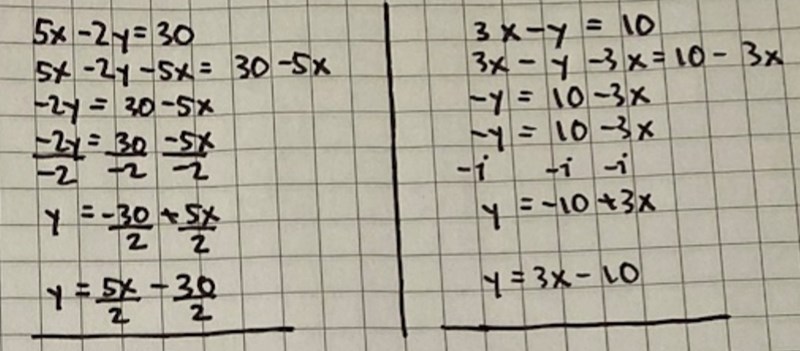 5x - 2y = 30
5x - 2y - 5x = 30 - 5x
-2y = 30 - 5x
-2y = 30 - 5x
-2 -2 -2
y = -30 + 5x
2 2
y = 5x - 30
2 2
3x - y = 10
3x - y - 3x = 10 - 3x
-y = 10 - 3x
-y = 10 - 3x
-i -i -i
y = -10 + 3x
y = 3x - 10